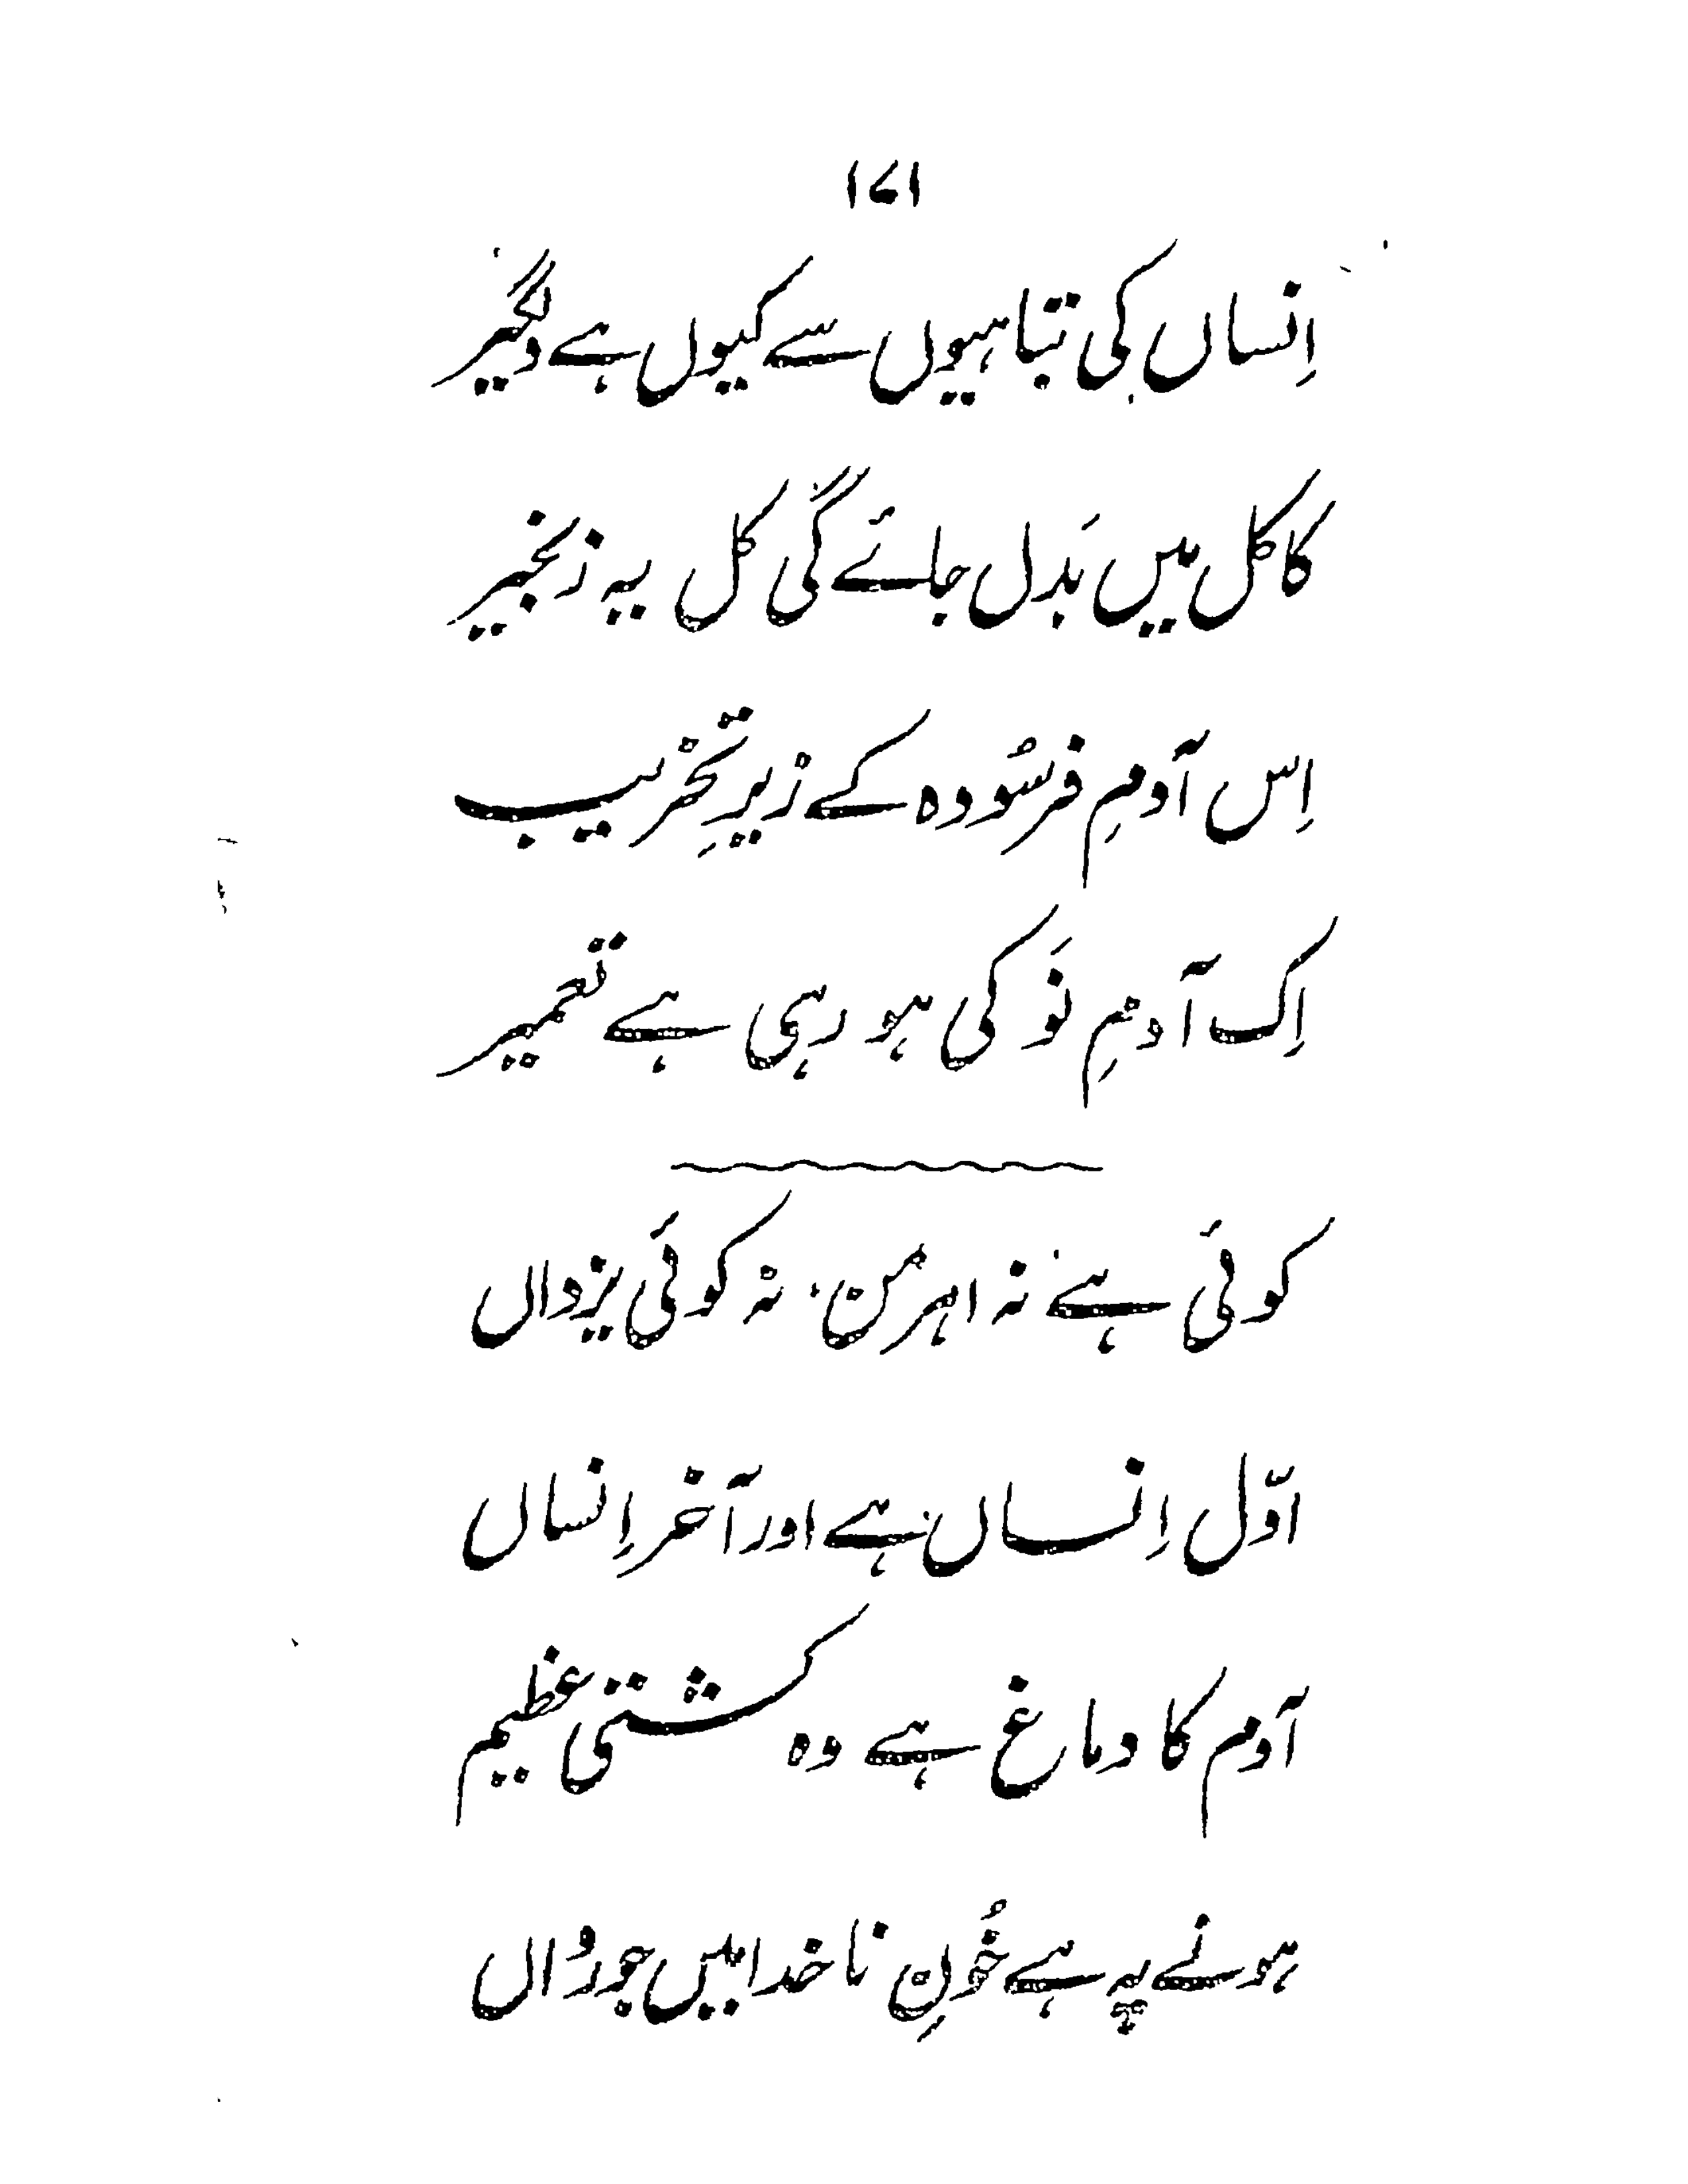 ۱۷۱
اِنساں کی تباہیوں سے کیوں ہے دلگیر
کاکل میں بَدل جائے گی کل یہ زنجیر
اِس آدمِ فرسُودہ کے زیرِ تخریب
اِک آدمِ نَو کی ہو رہی ہے تعمیر
کوئی ہے نہ اہرمن، نہ کوئی یزداں
اوّل اِنساں ہے اور آخر اِنساں
آدم کا دماغ ہے وہ کشتئی عظیم
ہونے پہ ہے خُونِ ناخدا میں جو رُواں